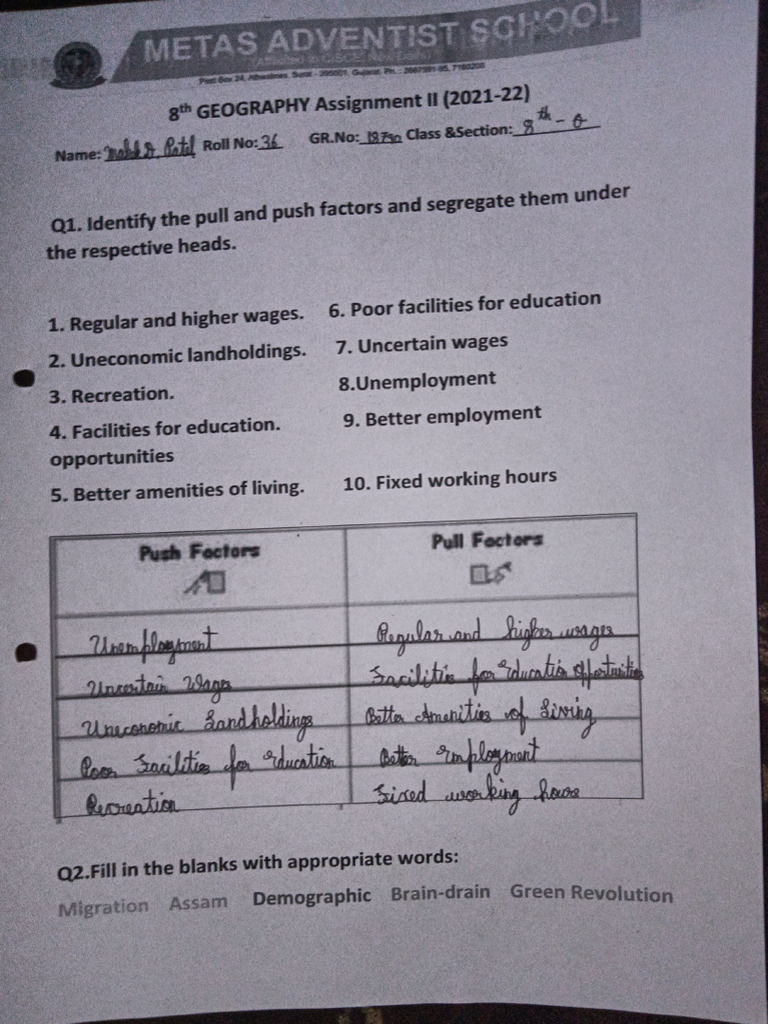 METAS ADVENTIST SCHOOL
8th GEOGRAPHY Assignment II (2021-22)
Name: Patel Roll No: 36 GR.No: Class &Section: 8th -
Q1. Identify the pull and push factors and segregate them under
the respective heads.
1. Regular and higher wages. 6. Poor facilities for education
2. Uneconomic landholdings. 7. Uncertain wages
3. Recreation. 8.Unemployment
4. Facilities for education. 9. Better employment
opportunities
5. Better amenities of living. 10. Fixed working hours
Push Factors Pull Factors
Unemployment Regular and higher wages
Uncertain Wages Facilities for education opportunities
Uneconomic Landholdings Better Amenities of Living
Poor Facilities for education Better employment
Recreation Fixed working hours
Q2.Fill in the blanks with appropriate words:
Migration Assam Demographic Brain-drain Green Revolution